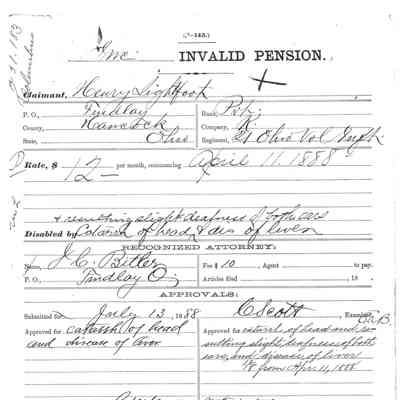 (3-145.)
Inc. INVALID PENSION.
Claimant, Henry Lightfoot
P. O., Findlay Rank, Pvt.
County, Hancock Company, K
State, Ohio Regiment, 21 Ohio Vol Inf
Rate, $ 12 per month, commencing April 11, 1888
& resulting slight deafness of both ears
Disabled by Catarrh of head & dis of liver
RECOGNIZED ATTORNEY:
Name, J. C. Bitler Fee $ 10 , Agent to pay.
P. O., Findlay O. Articles filed , 18 .
APPROVALS:
Submitted July 13, 1888 C Scott , Examiner.
Approved for catarrh of head Approved for catarrh of head and re-
and disease of liver sulting slight deafness of both
ears, and disease of liver
from Apr 11, 1888